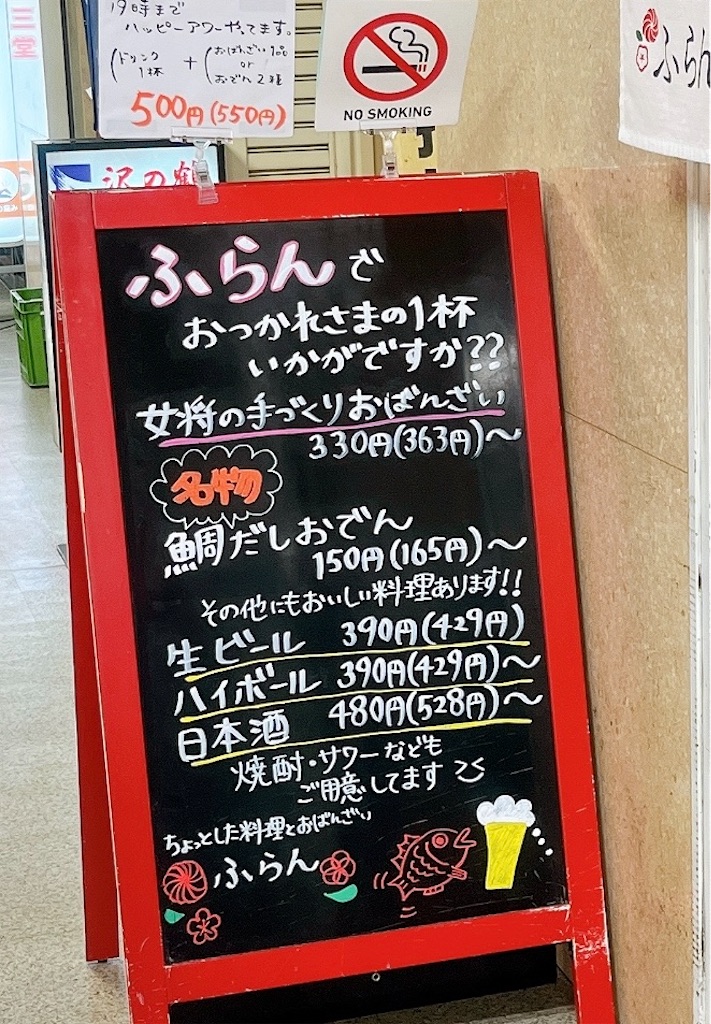 三堂
19時まで
ハッピーアワーやってます。
(ドリンク1杯 + (おばんざい1品 or おでん2種
500円(550円)
NO SMOKING
ふらん
沢の鶴
ふらんで
おつかれさまの1杯
いかがですか??
女将の手づくりおばんざい
330円(363円)～
名物
鯛だしおでん
150円(165円)～
その他にもおいしい料理あります!!
生ビール 390円(429円)
ハイボール 390円(429円)～
日本酒 480円(528円)～
焼酎・サワーなども
ご用意してます
ちょっとした料理とおばんざい
ふらん